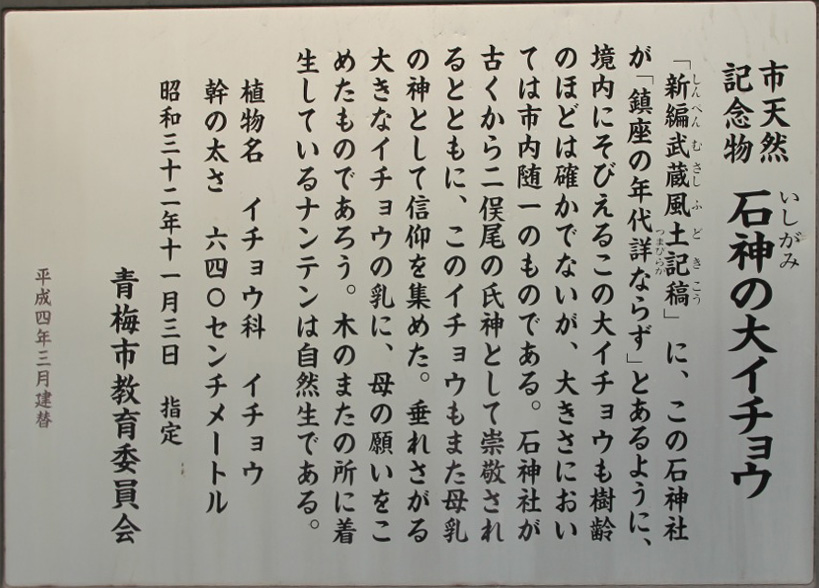 市天然
記念物
いしがみ
石神の大イチョウ
しんぺんむさしふどきこう
「新編武蔵風土記稿」に、この石神社
つまびらか
が「鎮座の年代詳ならず」とあるように、
境内にそびえるこの大イチョウも樹齢
のほどは確かでないが、大きさにおい
ては市内随一のものである。石神社が
古くから二俣尾の氏神として崇敬され
るとともに、このイチョウもまた母乳
の神として信仰を集めた。垂れさがる
大きなイチョウの乳に、母の願いをこ
めたものであろう。木のまたの所に着
生しているナンテンは自然生である。
植物名 イチョウ科 イチョウ
幹の太さ 六四〇センチメートル
昭和三十二年十一月三日 指定
青梅市教育委員会
平成四年三月建替